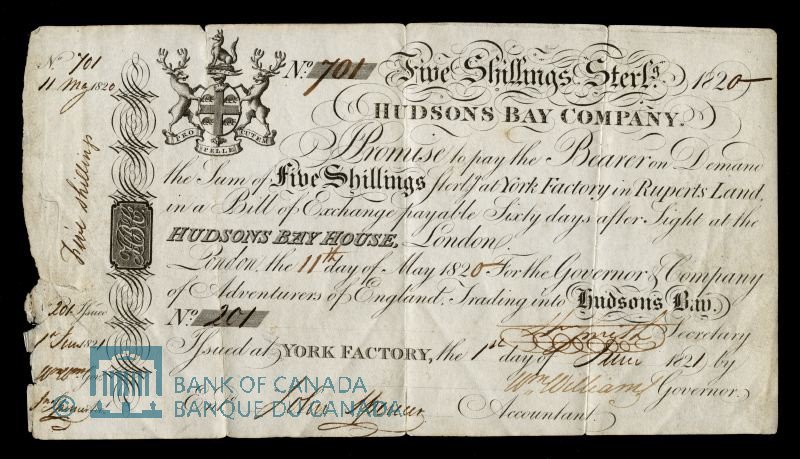 No 701
11 May 1820
Five shillings
201 Issued
1st June 1821
PRO PELLE CUTEM
HBC
No. 701 Five Shillings Sterlg. 1820
HUDSONS BAY COMPANY.
I Promise to pay the Bearer on Demand
the Sum of Five Shillings Sterlg. at York Factory in Ruperts Land,
in a Bill of Exchange payable Sixty days after Sight at the
HUDSONS BAY HOUSE, London.
London, the 11th day of May 1820 For the Governor & Company
of Adventurers of England. Trading into Hudsons Bay.
No. 201
Smith Secretary
Issued at YORK FACTORY, the 1st day of June 1821 by
Wm. Williams Governor.
Entd. John Spencer Accountant.
© BANK OF CANADA
BANQUE DU CANADA